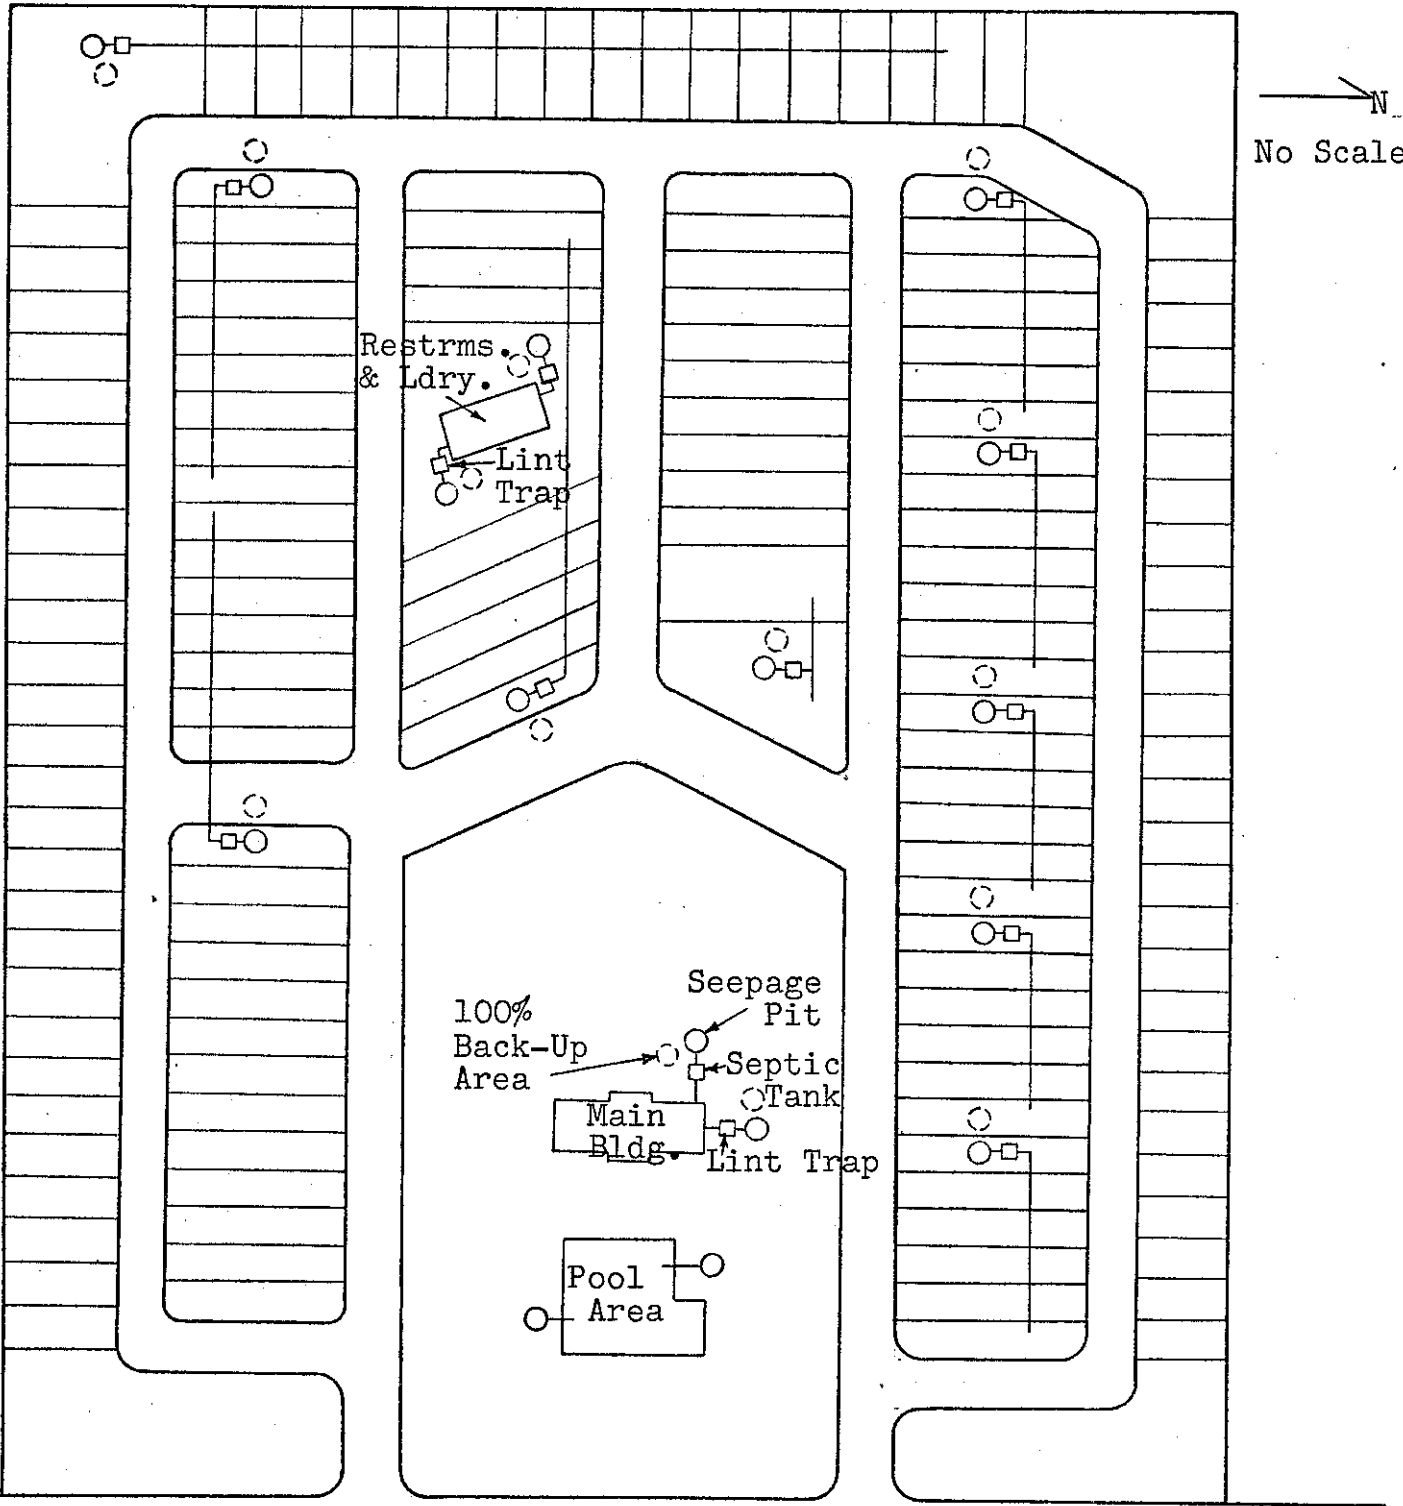 N
No Scale
Restrms.
& Ldry.
Lint
Trap
Seepage
Pit
100%
Back-Up
Area
Septic
Tank
Main
Bldg.
Lint Trap
Pool
Area